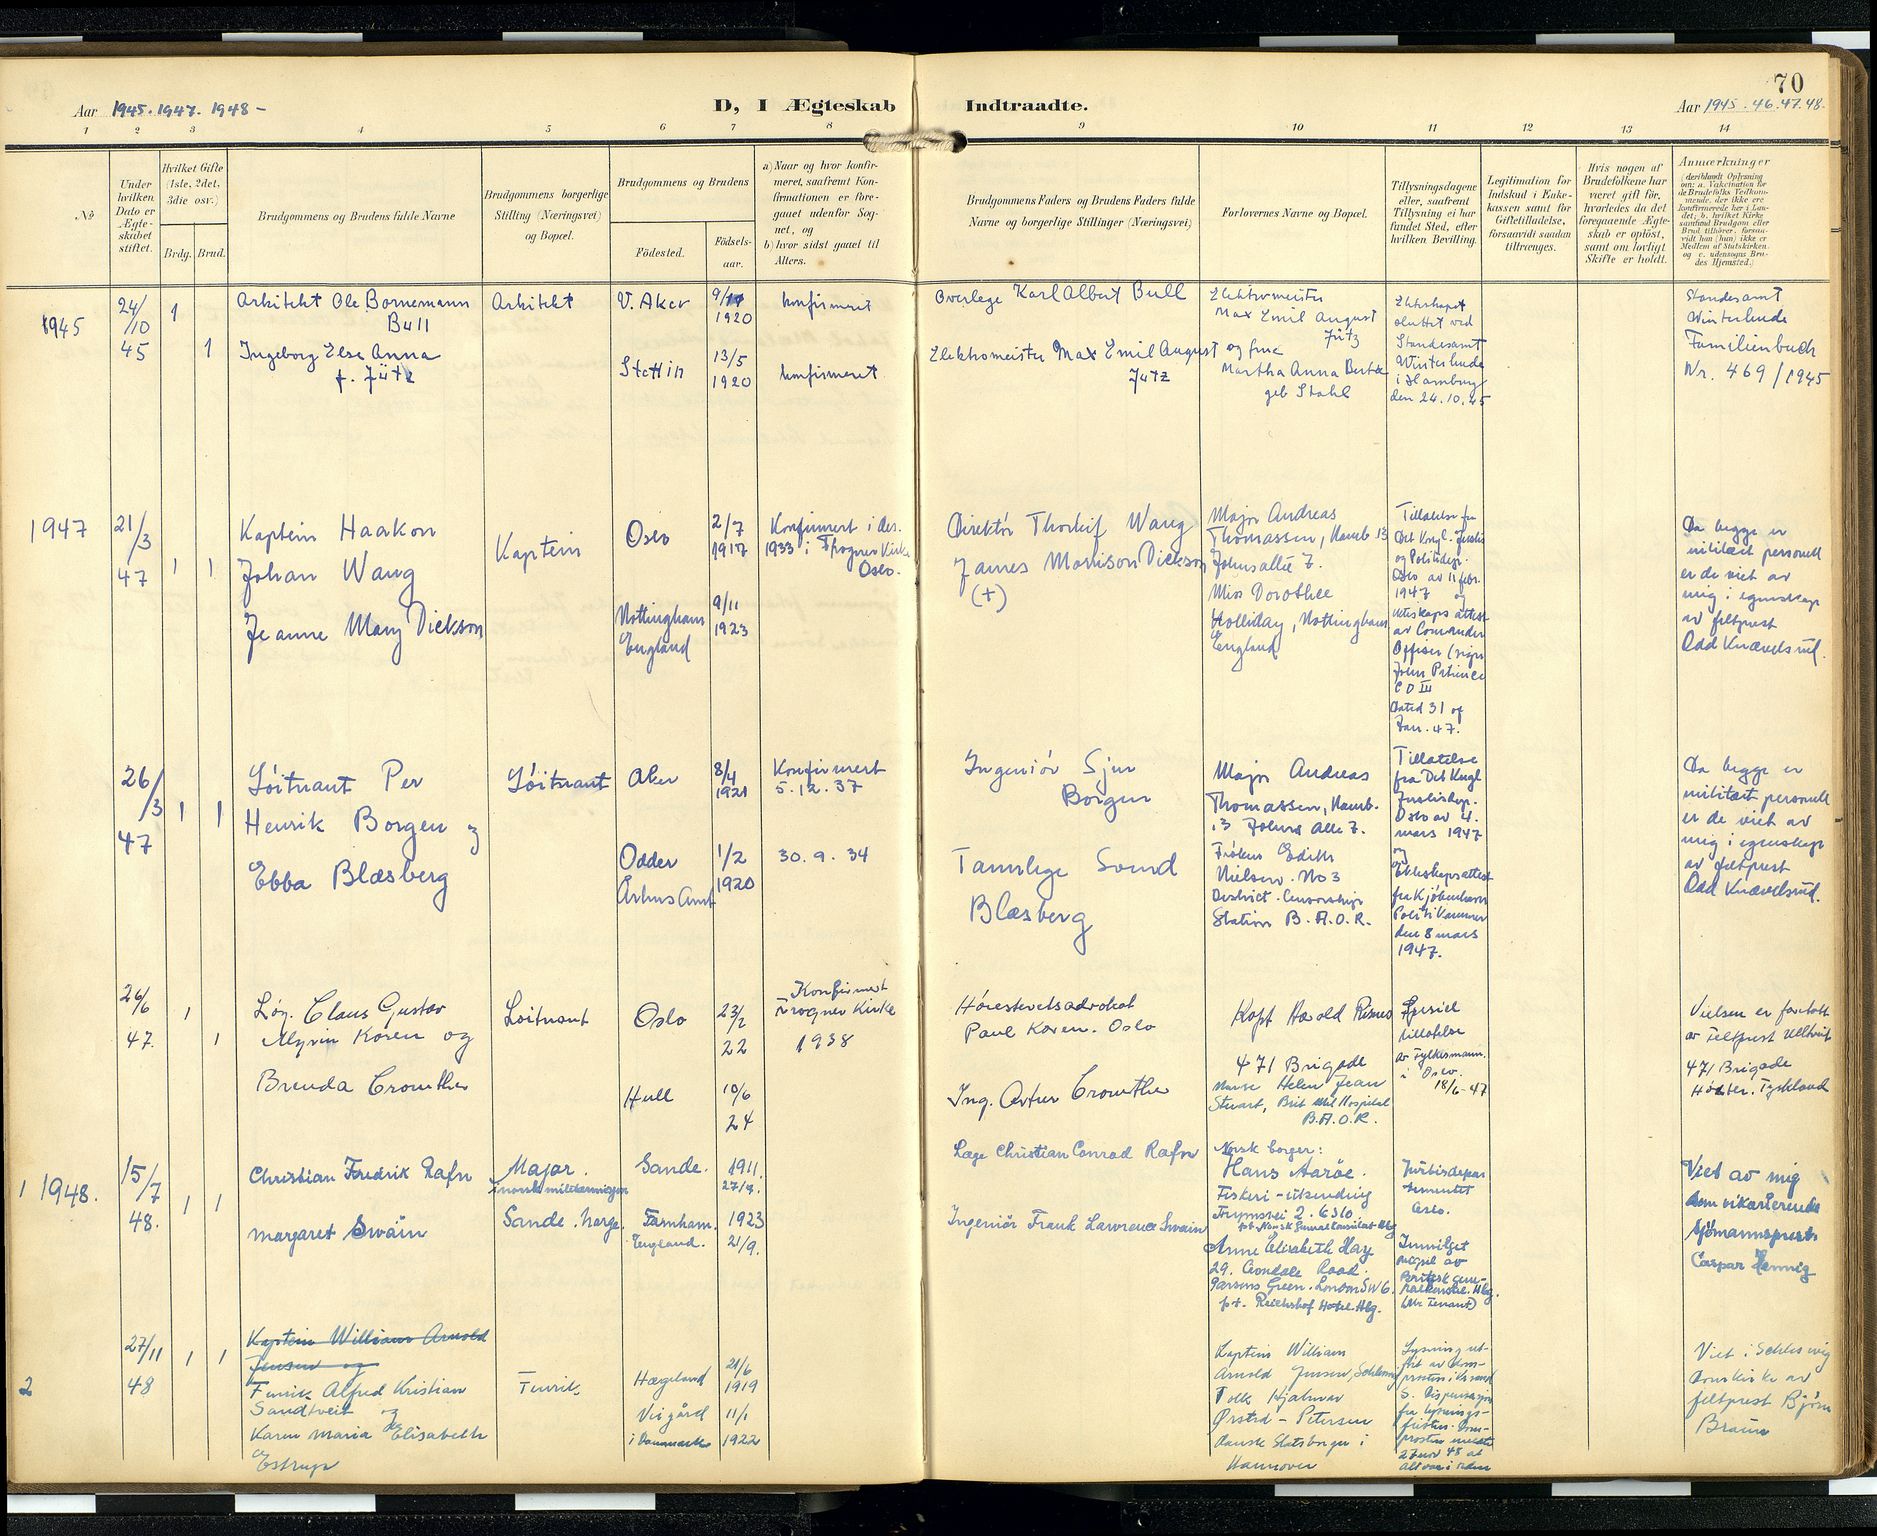 70
Aar 1945. 1947. 1948 -
D, I Ægteskab Indtraadte.
Aar 1945. 46. 47. 48.
1 2 3 4 5 6 7 8 9 10 11 12 13 14
No
Under hvilken Dato er Ægte-skabet stiftet.
Hvilket Gifte (1ste, 2det, 3die osv.)
Brdg. Brud.
Brudgommens og Brudens fulde Navne
Brudgommens borgerlige Stilling (Næringsvei) og Bopæl.
Brudgommens og Brudens
Födested.
Födsels-aar.
a) Naar og hvor konfir-
meret, saafremt Kon-
firmationen er fore-
gaaet udenfor Sog-
net, og
b) hvor sidst gaaet til
Alters.
Brudgommens Faders og Brudens Faders fulde
Navne og borgerlige Stillinger (Næringsvei)
Forlovernes Navne og Bopæl.
Tillysningsdagene
eller, saafremt
Tillysning ei har
fundet Sted, efter
hvilken Bevilling.
Legitimation for
Indskud i Enke-
kassen samt for
Giftetilladelse,
forsaavidt saadan
tiltrænges.
Hvis nogen af
Brudefolkene har
været gift för,
hvorledes da det
foregaaende Ægte-
skab er oplöst,
samt om lovligt
Skifte er holdt.
Anmærkninger
(deriblandt Oplysning
om: a. Vakcination for
de Brudefolks Vedkom-
mende, der ikke ere
konfirmerede her i Lan-
det; b. hvilket Kirke-
samfund Brudgom eller
Brud tilhörer, forsaa-
vidt han (hun) ikke er
Medlem af Statskirken,
og c. udensogns Bru-
des Hjemsted.)
1945
24/10
45
1
1
Arkitekt Ole Bornemann
Bull
Ingeborg Else Anna
f. Jütz
Arkitekt
V. Aker
Stettin
9/11
1920
13/5
1920
konfirmeret
konfirmeret
Overlege Karl Albert Bull
Elektromeister Max Emil August
Jütz
Elektromeister
Max Emil August
Jütz
og frue
Martha Anna Berta
geb Stahl
Ekteskapet
sluttet ved
Standesamt
Winterhude
i Hamburg
den 24.10.45
Standesamt
Winterhude
Familienbuch
Nr. 469/1945
1947
21/3
47
1 1
Kaptein Haakon
Johan Wang
Jeanne Mary Dickson
Kaptein
Oslo
Nottingham
England
2/7
1917
9/11
1923
Konfirmert i des.
1933 i Frogner Kirke
Oslo.
Direktör Thorleif Wang
James Morrison Dickson
(+)
Major Andreas
Thomassen, Hamb. 13
Johnsallée 7.
Miss Dorothee
Holliday, Nottingham
England
Tillatelse fra
Det Kngl. Justis
og Politidep.
Oslo av 11 febr.
1947 og
ekteskaps attest
av Comander
Officer (sign
John
C O III
Dated 31 of
Jan. 47.
Da begge er
militært personell
er de viet av
mig i egenskap
av feltprest
Odd Knævelsrud.
26/3
47
1 1
Löitnant Per
Henrik Borgen og
Ebba Blæsberg
Löitnant
Aker
Odder
Århus Amt
8/4
1921
1/2
1920
Konfirmert
5.12.37
30.9.34
Ingeniör Sjur
Borgen
Tannlege Svend
Blæsberg
Major Andreas
Thomassen, Hamb.
13 Johns Alle 7.
Fröken Edith
Nielsen. No 3
District. Censorship
Station B.A.O.R.
Tillatelse
fra Det Kngl
Justisdep.
Oslo av 4.
mars 1947
og
Ekteskapsattest
fra Kjöbenhavn
Politi Kammer
den 8 mars
1947.
Da begge er
militært personell
er de viet av
mig i egenskap
av feltprest
Odd Knævelsrud.
26/6
47.
1
1
Löjn. Claus Gustav
Koren og
Brenda Crowther
Löitnant
Oslo
Hull
23/2
22
10/6
24
Konfirmert
Frogner Kirke
1938
Höiesteretsadvokat
Paul Koren. Oslo
Ing. Artur Crowther
Kapt Harold
471 Brigade
Nurse Helen Jean
Stuart, Brit Mil Hospital
B.A.O.R.
Spesiel
tillatelse
av Fylkesmann.
i Oslo.
18/6-47
Vielsen er foretatt
av Feltprest
471 Brigade
Höxter. Tyskland
1 1948.
15/7
48.
1 1
Christian Fredrik Rafn
Margaret Swain
Major.
norsk militærmisjon
Sande. Norge.
Sande.
Farnham.
England.
1911.
27/9.
1923
21/9.
Læge Christian Conrad Rafn
Ingeniör Frank Lawrence Swain
Norsk borger:
Hans Aaröe.
Fiskeri-utsending
2. 6310
p.t. Norsk Generalkonsulat Hbg
Anne Elizabeth Hay
29. Crondale Road.
Parsons Green. London SW6.
p.t. Reichshof Hotel. Hbg.
Justisdepar
tementet
Oslo.
Innvilget
også av
Britisk Gene-
ralkonsul. Hbg.
(Mr Tenant)
Viet av mig
som vikarierende
sjömannsprest.
Caspar Hennig
2
27/11
48
1 1
Kaptein William Arnold
Jensen og
Fenrik Alfred Kristian
Sandtveit og
Karen Maria Elisabeth
Estrup
Fenrik
Hægeland
i Danmark
21/6
1919
11/1
1922
Kaptein William
Arnold Jensen, Schleswig
Tolk Hjalmar
Ørsted-Petersen
Dansk Statsborger i
Hannover
Viet i Schleswig
domkirke av
feltprest Björn
Braun